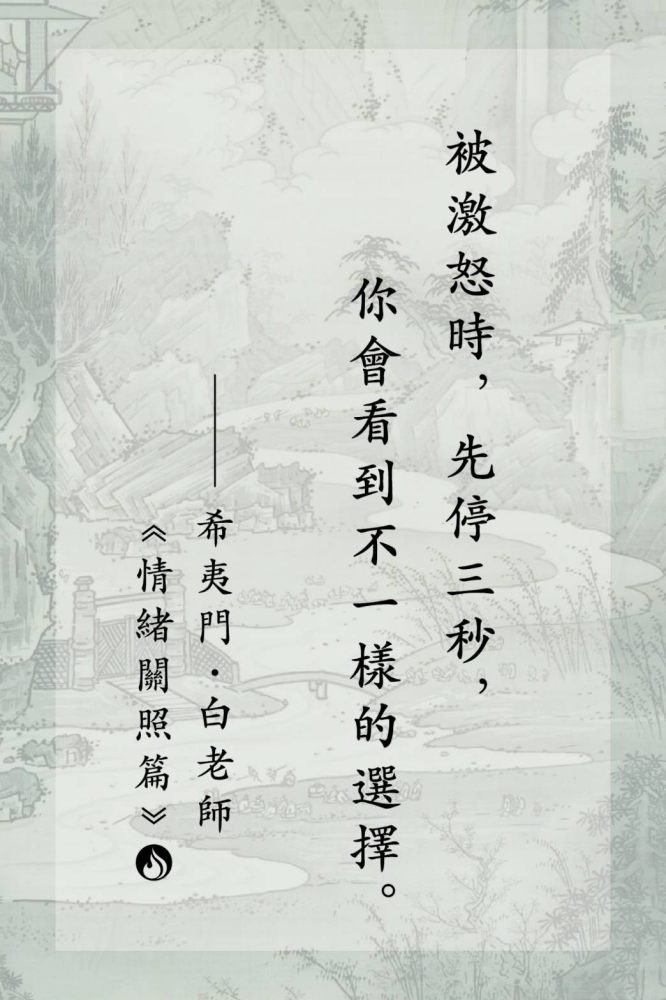 被激怒時，先停三秒，
你會看到不一樣的選擇。
——希夷門·白老師
《情緒關照篇》